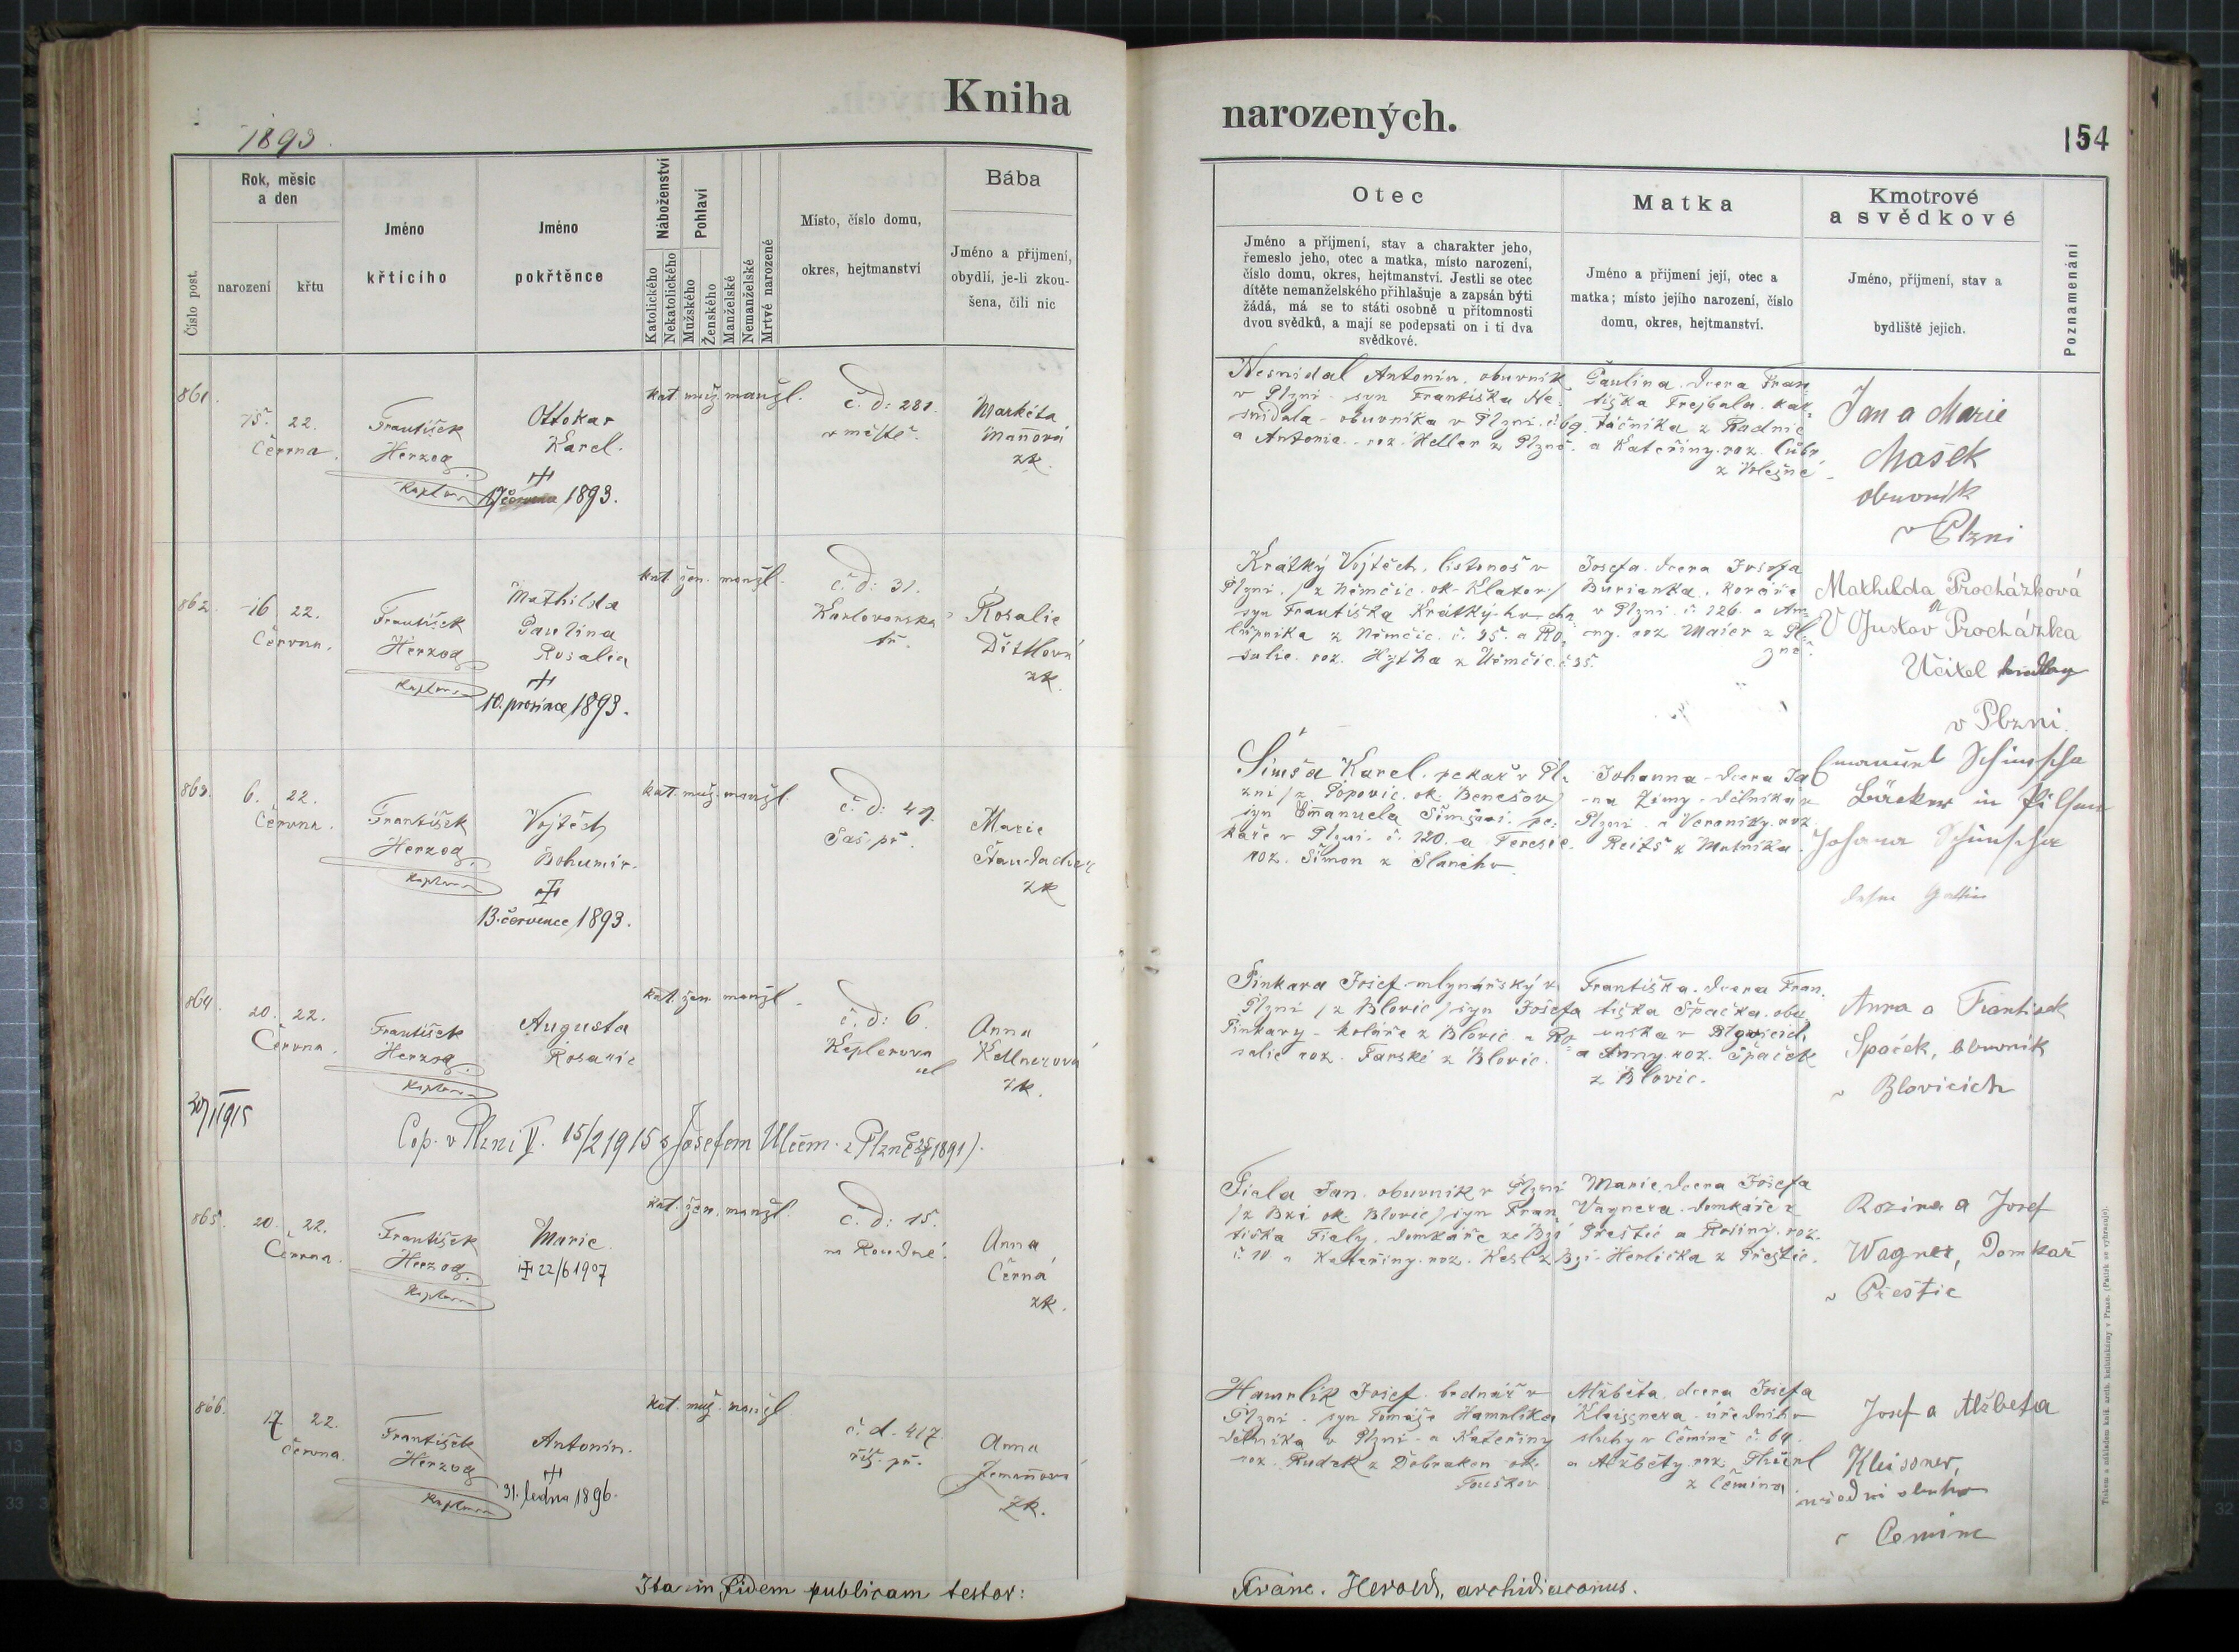 Kniha
narozených.
1893.
154
Číslo post.
Rok, měsíc
a den
narození
křtu
Jméno
křtícího
Jméno
pokřtěnce
Náboženství
Katolického
Nekatolického
Pohlaví
Mužského
Ženského
Manželské
Nemanželské
Mrtvě narozené
Místo, číslo domu,
okres, hejtmanství
Bába
Jméno a příjmení,
obydlí, je-li zkou-
šena, čili nic
Otec
Jméno a příjmení, stav a charakter jeho,
řemeslo jeho, otec a matka, místo narození,
číslo domu, okres, hejtmanství. Jestli se otec
dítěte nemanželského přihlašuje a zapsán býti
žádá, má se to státi osobně u přítomnosti
dvou svědků, a mají se podepsati on i ti dva
svědkové.
Matka
Jméno a příjmení její, otec a
matka; místo jejího narození, číslo
domu, okres, hejtmanství.
Kmotrové
a svědkové
Jméno, příjmení, stav a
bydliště jejich.
Poznamenání
861.
15. 22.
Června.
František
Herzog
Kaplan
Ottokar
Karel.
1893.
kat. muž. manžl.
č. d: 281.
v městě.
Markéta
Maňová
zk.
Nesnidal Antonín. obuvník
v Plzni - syn Františka Ne-
snidala - obuvníka v Plzni.
a Antonie. roz. Heller z Plzně.
Paulina. dcera Fran
tiška Trejbala. kar-
táčníka z Radnic
a Kateřiny. roz.
z Volešné
Jan a Marie
Mašek
obuvník
v Plzni
862.
16. 22.
Června.
František
Herzog
Kaplan
Mathilda
Paulina
Rosalia
10. prosince 1893.
kat. žen. manžl.
č. d: 31.
Karlovarska
tř.
Rosalie
Ditlová
zk.
Krátký Vojtěch. listonoš v
Plzni. (z Němčic. ok. Klatov)
syn Františka Krátký.
z Němčic. č. 35. a Ro-
salie. roz. Hytha z Němčic. č 35.
Josefa. dcera Josefa
Burianka.
v Plzni. č 126. a An-
ny. roz Maier z Pl-
zně.
Mathilda Procházková
Gustav Procházka
Učitel hudby
v Plzni.
863.
6. 22.
Června.
František
Herzog
Kaplan
Vojtěch
Bohumír.
13. července 1893.
kat. muž. manžl.
č. d: 49.
Sas. př.
Marie
Staudacher
zk
Šimša Karel. pekař v Pl-
zni (z Popovic. ok. Benešov)
syn Emanuela Šimši. pe-
kaře v Plzni. č. 120. a Teresie.
roz. Šiman z Slaného.
Johanna - dcera Ja
na Zimy - dělníka v
Plzni a Veroniky. roz.
Reitš z Mutěnína.
Emanuel Schimscha
Bäcker in Pilsen
Johanna Schimscha
dessen Gattin
864.
20. 22.
Června.
František
Herzog
Kaplan
Augusta
Rosarie
kat. žen. manžl.
č. d: 6.
Keplerova
ul
Anna
Kellnerová
zk.
Pinkava Josef. mlynářský v
Plzni (z Blovic) syn Josefa
Pinkavy - koláře z Blovic a Ro-
salie roz. Farské z Blovic.
Františka. dcera Fran.
tiška Špačka. obu-
vníka v Blovicích
a Anny. roz. Špaček
z Blovic.
Anna a Frantisek
Spaček, obuvnik
v Blovicich
Cop. v Plzni V. 15/2 1915 s Josefem Ulčem. z Plzně
865.
20. 22.
Června.
František
Herzog.
Kaplan
Marie
22/6 1907
kat. žen. manžl.
č. d: 15.
na Roudné.
Anna
Černá
zk.
Fiala Jan. obuvník v Plzni
(z Bzí ok. Blovic) syn Fran
tiška Fialy. domkáře ze Bzí
č 10 a Kateřiny. roz. Kesl z Bzí.
Marie. dcera Josefa
Vagnera. domkáře z
Přeštic a Rosiny. roz.
Herlička z Přeštic.
Rozina a Josef
Wagner, Domkař
v Přeštic
866.
17 22.
Června.
František
Herzog
Kaplan
Antonín.
31. ledna 1896.
kat. muž. manžl
č. d. 417.
říš. př.
Anna
Zemanová
zk.
Hamrlík Josef. bednář v
Plzni. syn Tomáše Hamrlíka
dělníka v Plzni - a Kateřiny
roz. Rudek z Dobraken ok.
Touškov
Alžběta. dcera Josefa
Kleissnera - úředního
sluhy v Čemíně č. 64.
a Alžběty. roz.
z Čemína
Josef a Alžbeta
Kleissner,
úřední sluha
v Cemine
Ita in fidem publicam testor:
Franc. Herold, archidiaconus.